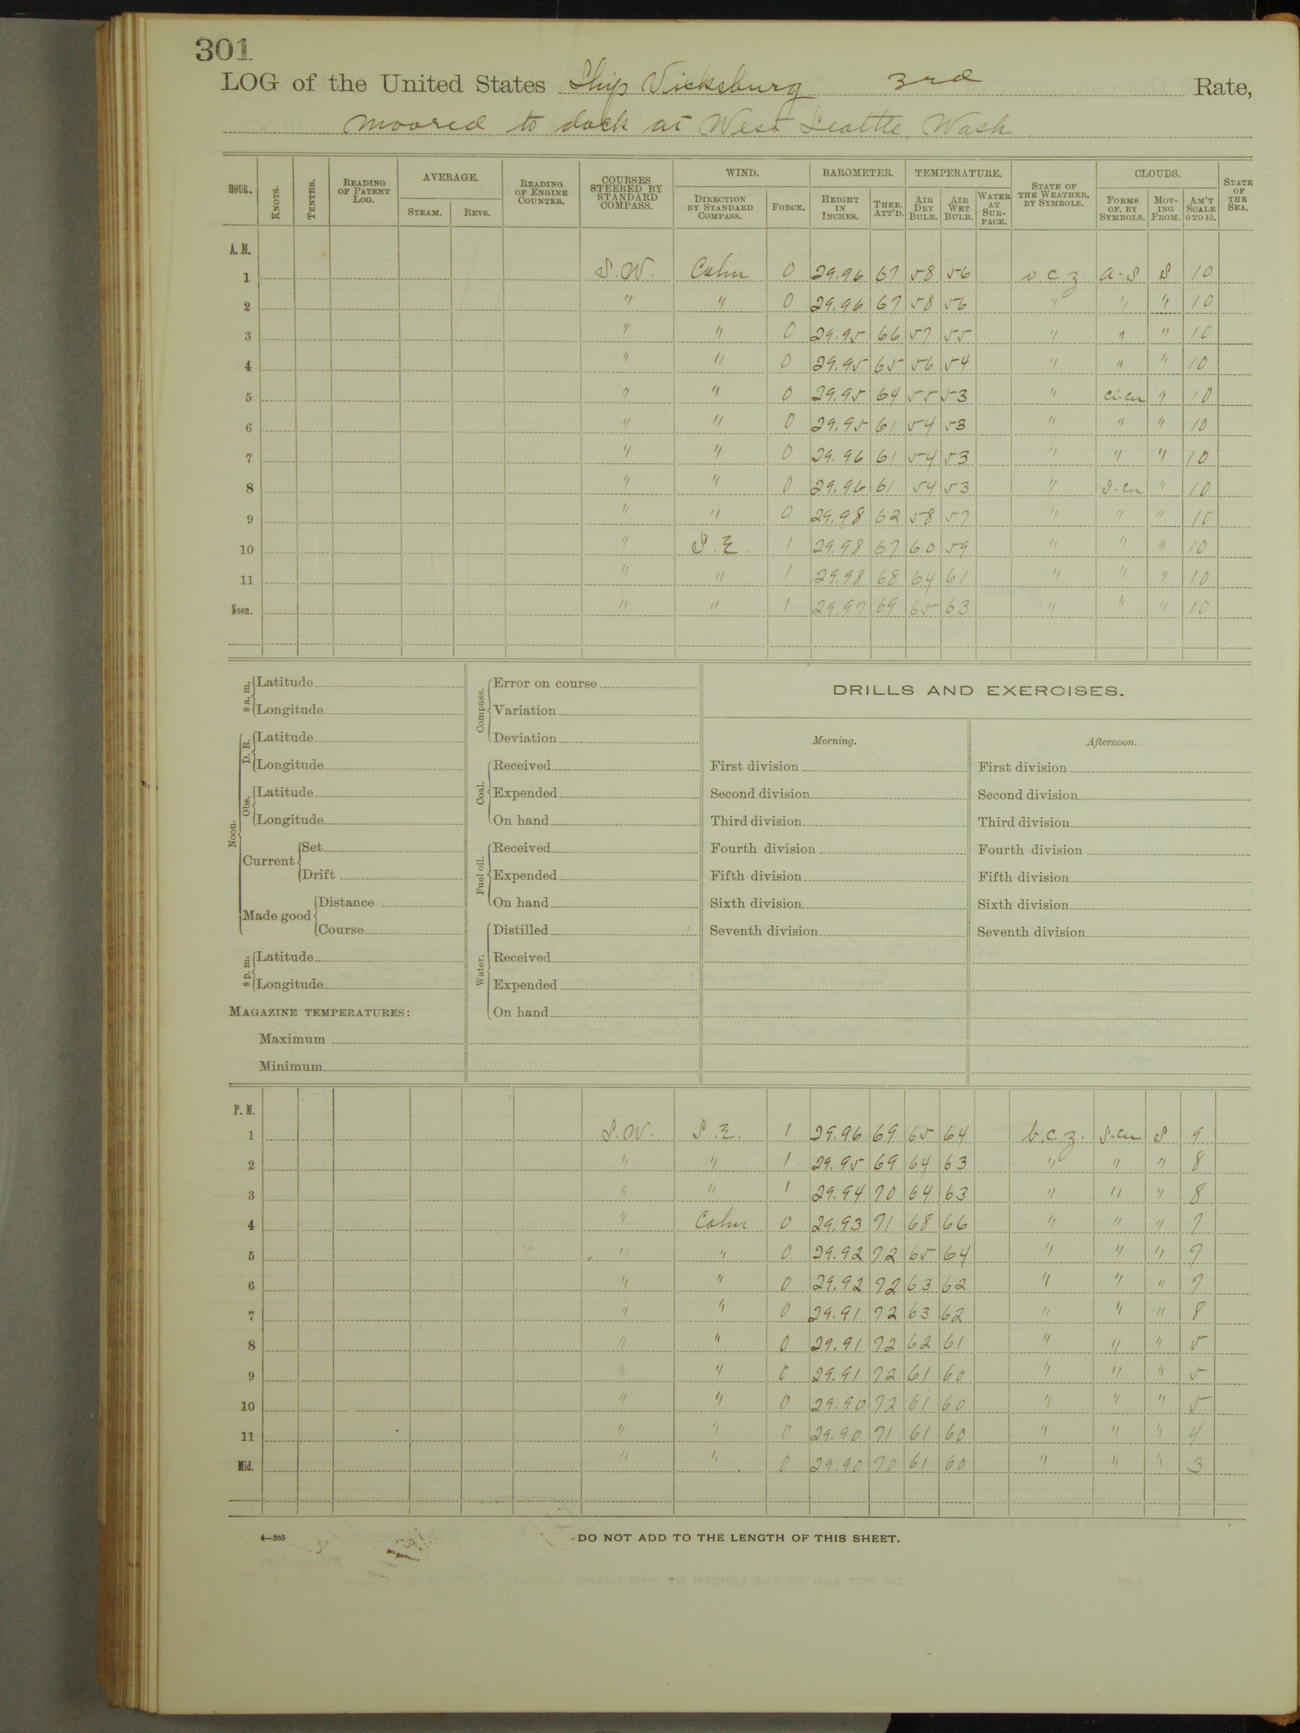 301
LOG of the United States Ship Vicksburg 3rd Rate,
moored to dock at West Seattle, Wash.
HOUR. KNOTS. TENTHS. READING OF PATENT LOG. AVERAGE. STEAM. REVS. READING OF ENGINE COUNTER. COURSES STEERED BY STANDARD COMPASS. WIND. DIRECTION BY STANDARD COMPASS. FORCE. BAROMETER. HEIGHT IN INCHES. THER. ATT'D. TEMPERATURE. AIR DRY BULB. AIR WET BULB. WATER AT SURFACE. STATE OF THE WEATHER, BY SYMBOLS. CLOUDS. FORMS OF, BY SYMBOLS. MOVING FROM. AM'T SCALE 0 TO 10. STATE OF THE SEA.
A. M.
1 S.W. Calm 0 29.96 67 58 56 o.c.z. A-S S 10
2 " " 0 29.96 67 58 56 " " " 10
3 " " 0 29.95 66 57 55 " " " 10
4 " " 0 29.95 65 56 54 " " " 10
5 " " 0 29.95 64 55 53 " Ci-cu " 10
6 " " 0 29.95 61 54 53 " " " 10
7 " " 0 29.96 61 54 53 " " " 10
8 " " 0 29.96 61 54 53 " S-cu " 10
9 " " 0 29.98 62 58 57 " " " 10
10 " S.E. 1 29.98 67 60 59 " " " 10
11 " " 1 29.98 68 64 61 " " " 10
Noon. " " 1 29.97 69 65 63 " " " 10
8 a. m. Latitude
Longitude
Noon. D. R. Latitude
Longitude
Obs. Latitude
Longitude
Current Set
Drift
Made good Distance
Course
8 p. m. Latitude
Longitude
MAGAZINE TEMPERATURES:
Maximum
Minimum
Compass. Error on course
Variation
Deviation
Coal. Received
Expended
On hand
Fuel oil. Received
Expended
On hand
Water. Distilled
Received
Expended
On hand
DRILLS AND EXERCISES.
Morning. Afternoon.
First division First division
Second division Second division
Third division Third division
Fourth division Fourth division
Fifth division Fifth division
Sixth division Sixth division
Seventh division Seventh division
P. M.
1 S.W. S.E. 1 29.96 69 65 64 b.c.z. S-cu S 9
2 " " 1 29.95 69 64 63 " " " 8
3 " " 1 29.94 70 64 63 " " " 8
4 " Calm 0 29.93 71 68 66 " " " 7
5 " " 0 29.92 72 65 64 " " " 7
6 " " 0 29.92 72 63 62 " " " 7
7 " " 0 29.91 72 63 62 " " " 8
8 " " 0 29.91 72 62 61 " " " 5
9 " " 0 29.91 72 61 60 " " " 5
10 " " 0 29.90 72 61 60 " " " 5
11 " " 0 29.90 71 61 60 " " " 4
Mid. " " 0 29.90 70 61 60 " " " 3
4—265
DO NOT ADD TO THE LENGTH OF THIS SHEET.